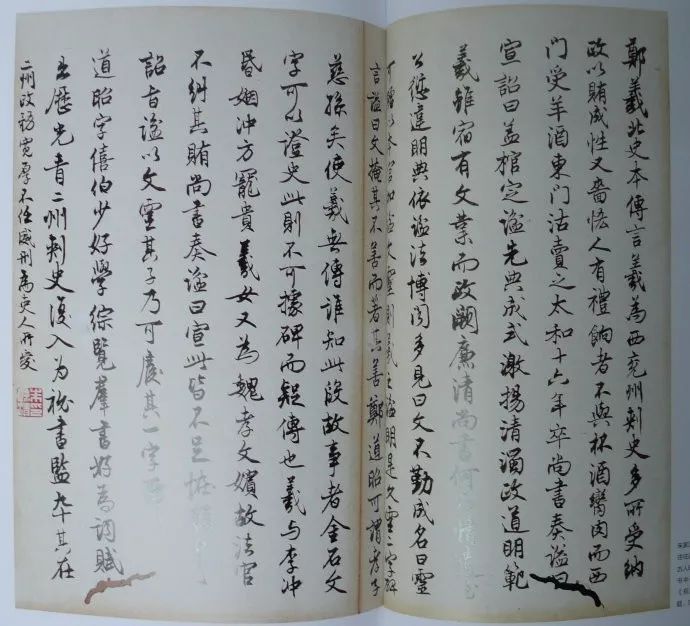 鄭羲北史本傳言羲為西兗州刺史多所受納
政以賄成性又嗇恡人有禮餉者不與杯酒臠肉而西
門受羊酒東門沽賣之太和十六年卒尚書奏謚曰
宣詔曰蓋棺定謚先典成式激揚清濁政道明範
羲雖宿有文業而政闕廉清尚書何乃情違至
公愆違明典依謚法博聞多見曰文不勤成名曰靈
可贈以本官加謚文靈則羲之謚明是文靈二字碑
言謚曰文掩其不善而著其善鄭道昭可謂孝子
慈孫矣使羲無傳誰知此段故事者金石文
字可以證史此則不可據碑而疑傳也羲與李沖
昏姻沖方寵貴羲女又為魏孝文嬪故法官
不糾其賄尚書奏謚曰宣此皆不足
詔旨謚以文靈其子乃可廋其一字
道昭字僖伯少好學綜覽羣書好為詞賦
歷光青二州刺史復入為祕書監卒其在
二州政務寬厚不任威刑為吏人所愛